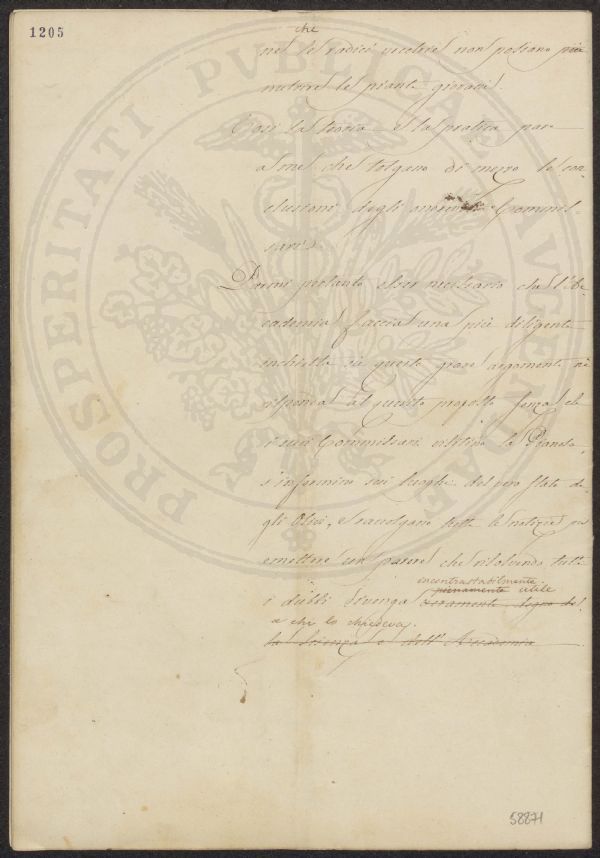 1205
che
nel le radici vecchie non possano più
nutrire le piante giovani.
Così la teoria e la pratica par
a me che tolgano di mezzo le con
clusioni degli onorevoli Commis-
sari.
Parmi pertanto esser necessario che l'Ac
cademia faccia una più diligente
inchiesta su questo grave argomento in
risposta al quesito proposto che
i suoi Commissari visitino la Pianosa
s'informino sui luoghi del vero stato de
gli Olivi, e raccolgano tutte le notizie per
emettere un parere che risolvendo tutti
incontrastabilmente
pienamente utile
i dubbi divenga veramente degno del
a chi lo chiedeva.
la Scienza e dell'Accademia
58871
PROSPERITATI PUBLICAE AUGENDAE